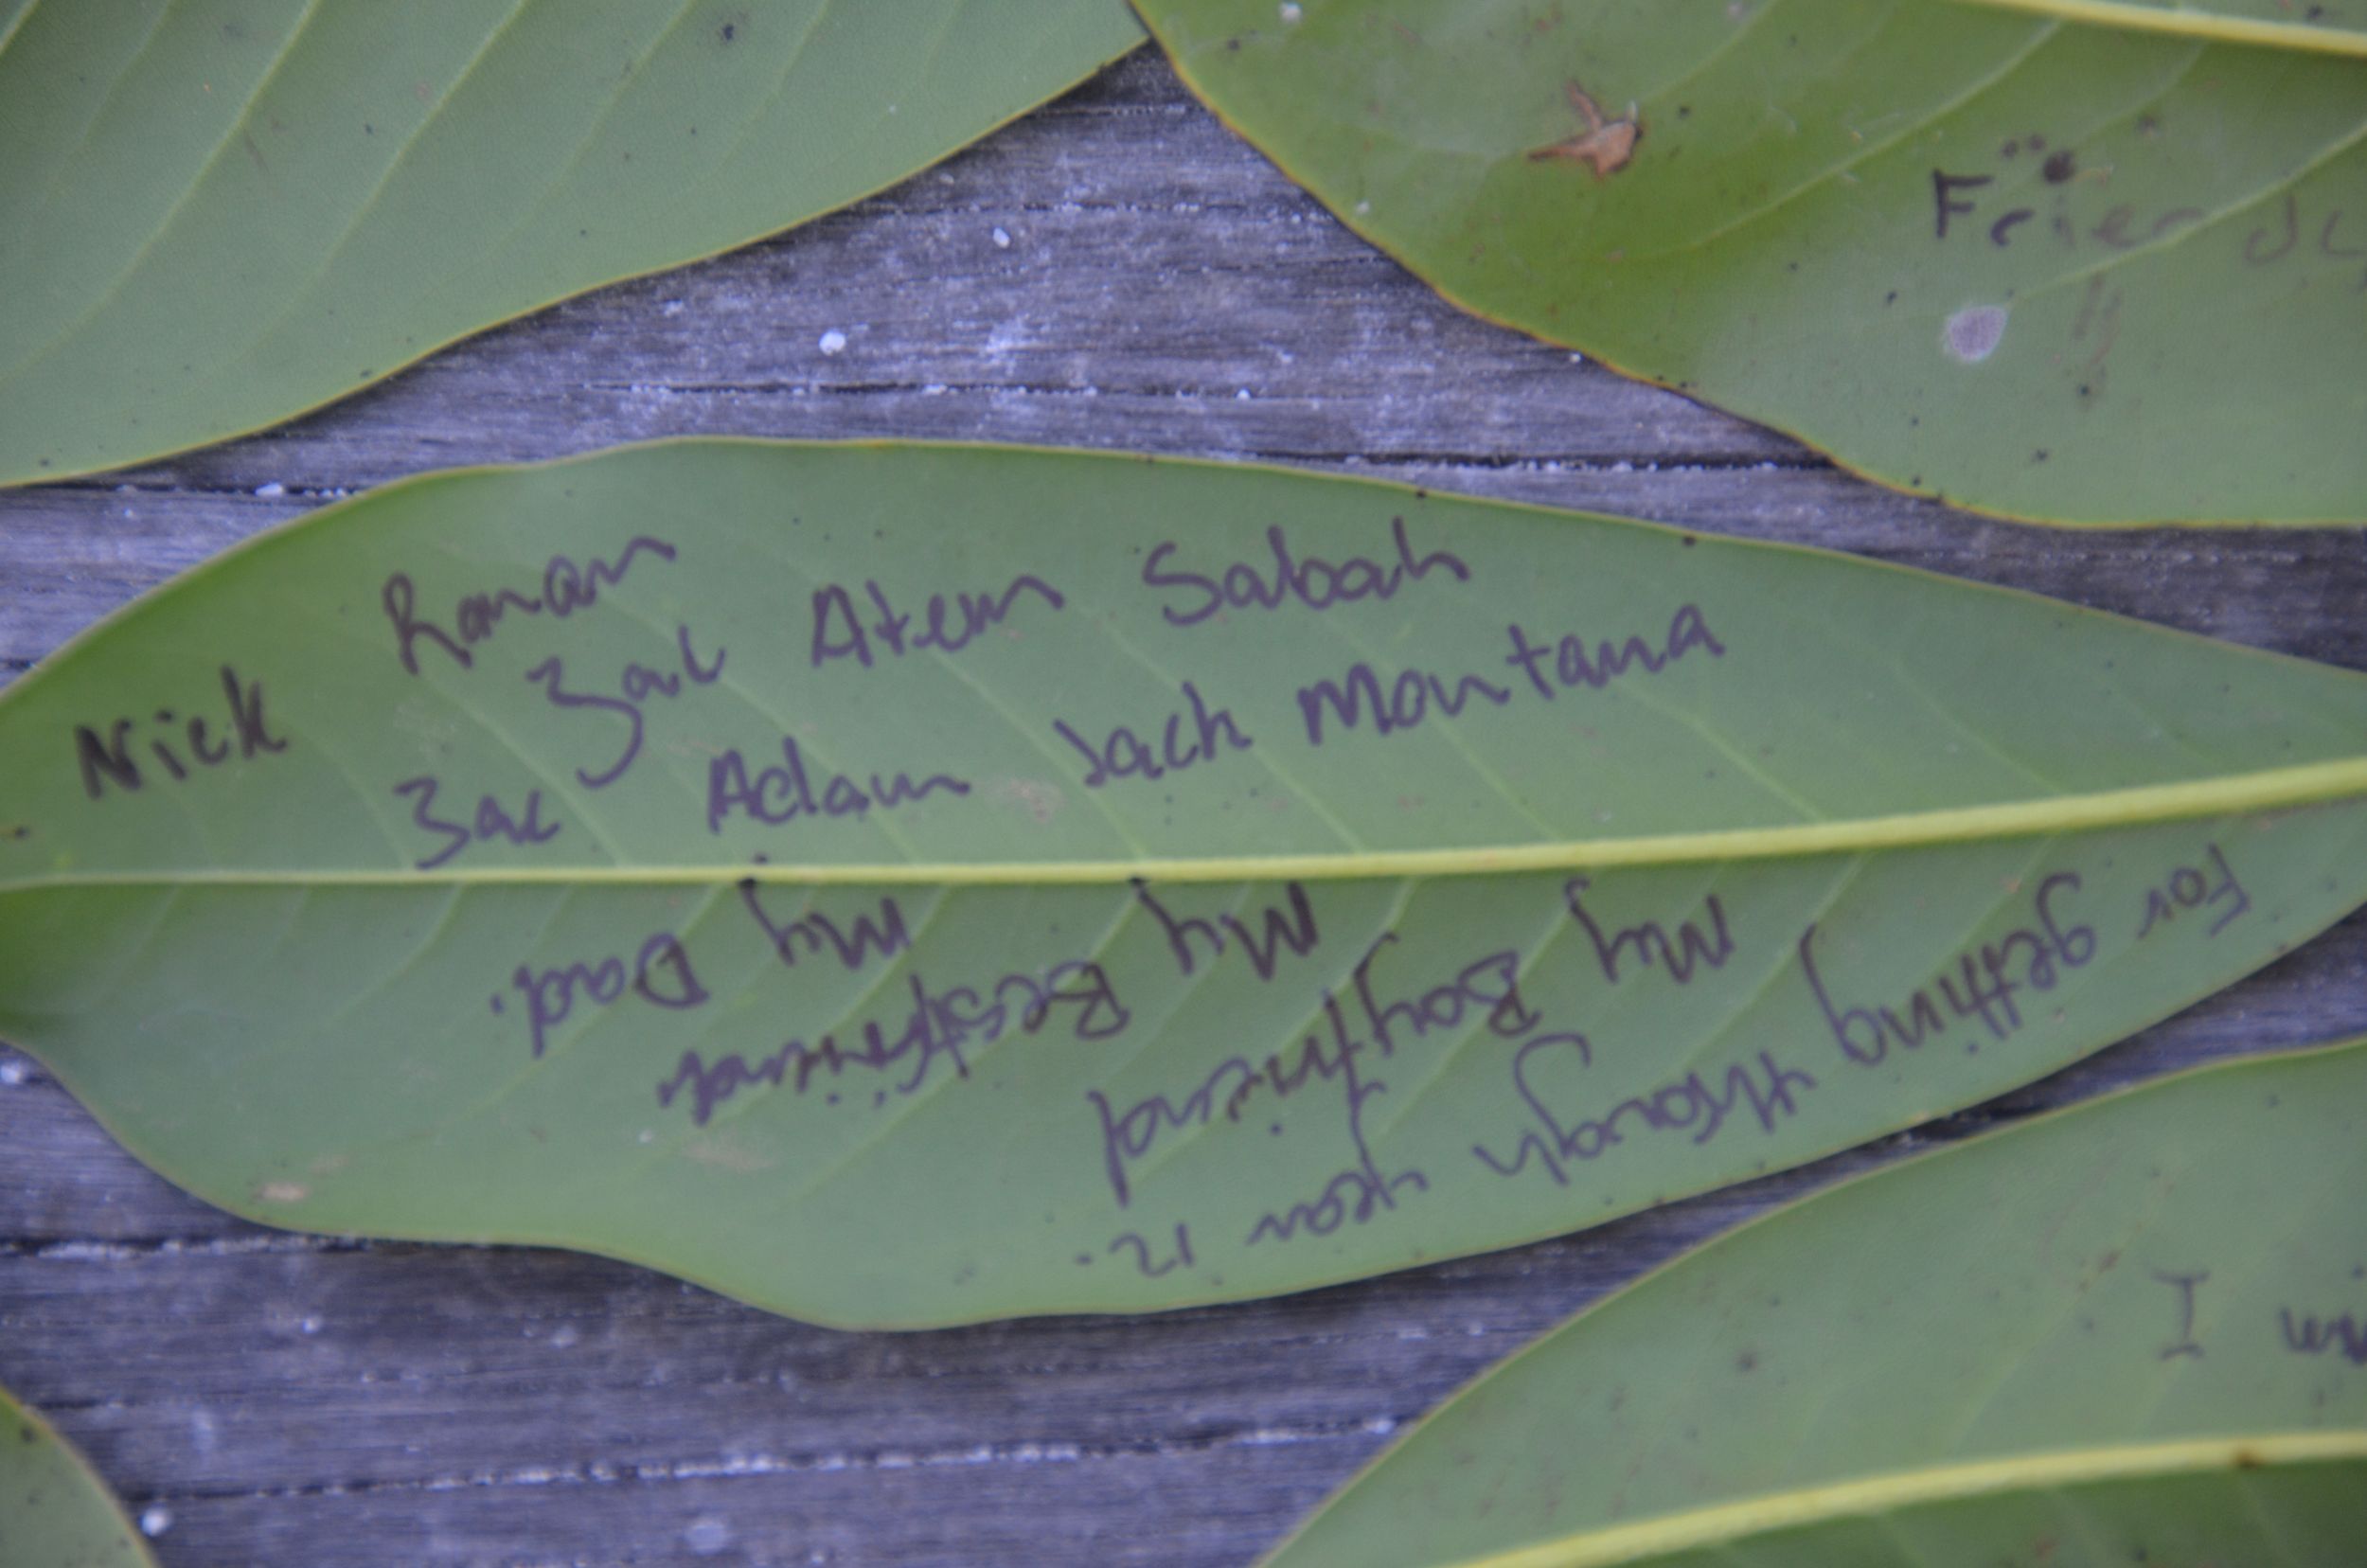 Friendly
Nick Roman
Zac Atem Sabah
Zac Adam Jack Montana
For getting through year 12.
My Boyfriend
My Bestfriend.
My Dad.
I